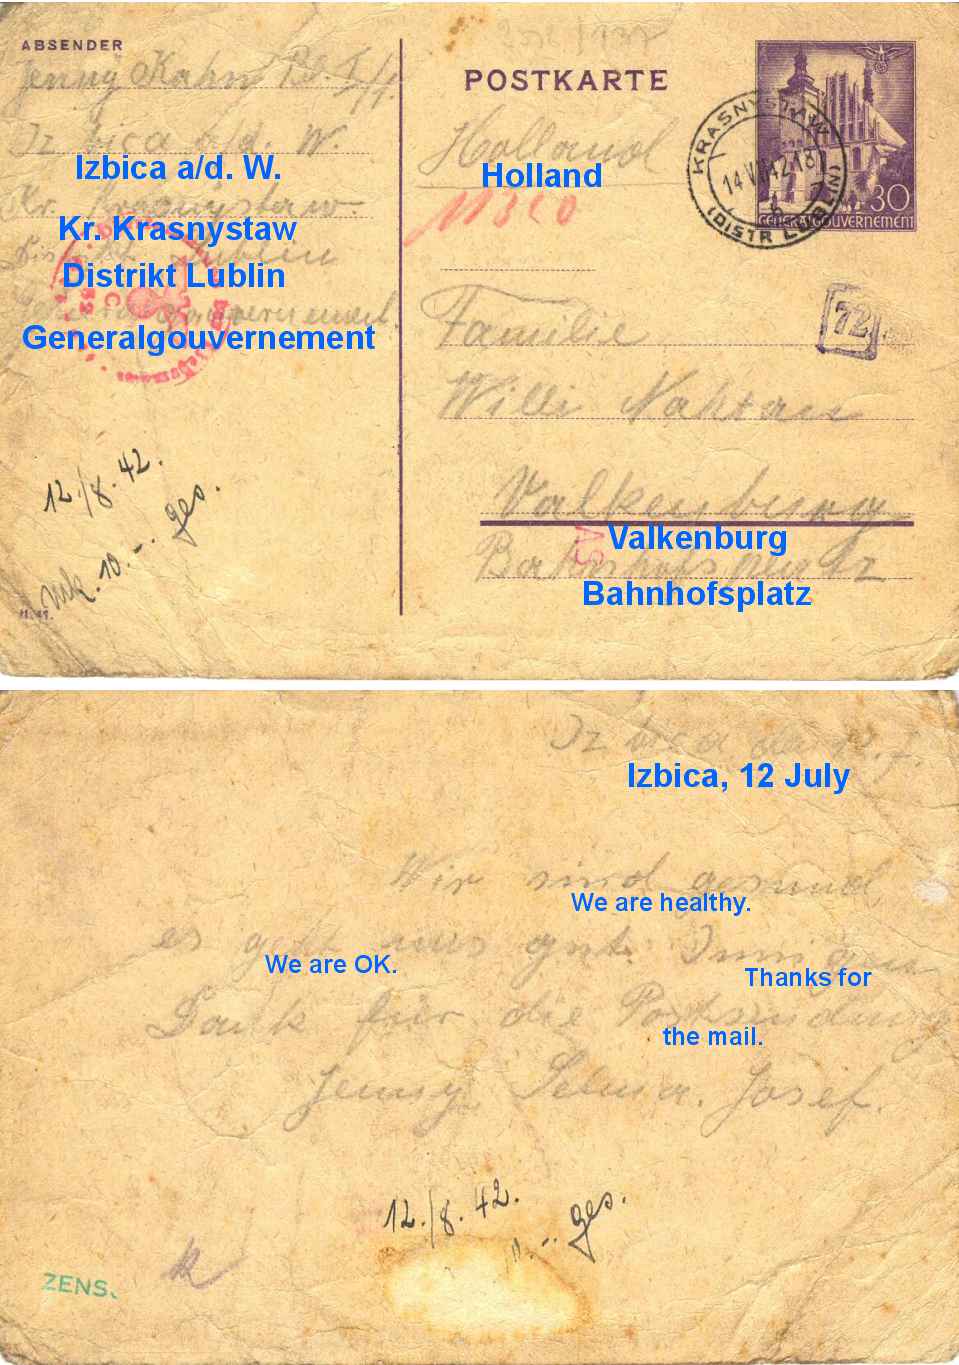 ABSENDER
Jenny Kahn
Izbica a/d. W.
Izbica a/d. W.
Kr. Krasnystaw
Kr. Krasnystaw
Distrikt Lublin
Distrikt Lublin
Generalgouvernement
Generalgouvernement
12./8. 42.
Mk. 10.- ges.
POSTKARTE
KRASNYSTAW
14 VII 42 18
(DISTR LUBLIN)
30
GENERALGOUVERNEMENT
Holland
Holland
11320
72
Familie
Willi Nahtan
Valkenburg
Valkenburg
Bahnhofsplatz
Bahnhofsplatz
Izbica den 12. 7.
Izbica, 12 July
Wir sind gesund
We are healthy.
es geht uns gut. Innigen
We are OK.
Thanks for
Dank für die Postsendung
the mail.
Jenny Selma. Josef.
12./8. 42.
ges.
ZENS.